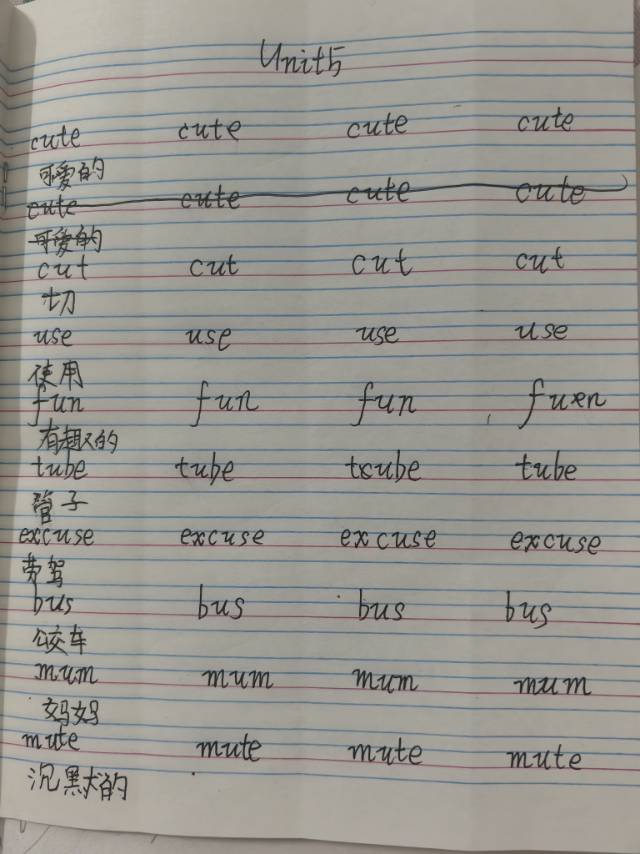 Unit5
cute cute cute cute
可爱的
cute cute cute cute
可爱的
cut cut cut cut
切
use use use use
使用
fun fun fun fuxn
有趣的
tube tube txube tube
管子
excuse excuse excuse excuse
劳驾
bus bus bus bus
公交车
mum mum mum mum
妈妈
mute mute mute mute
沉默的